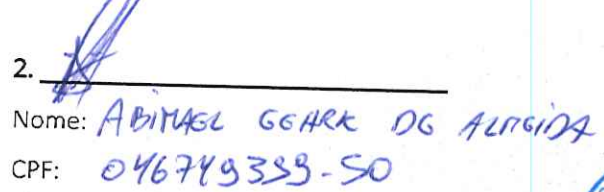 2.
Nome: ABIMAEL GEARK DE ALMEIDA
CPF: 046749399-50